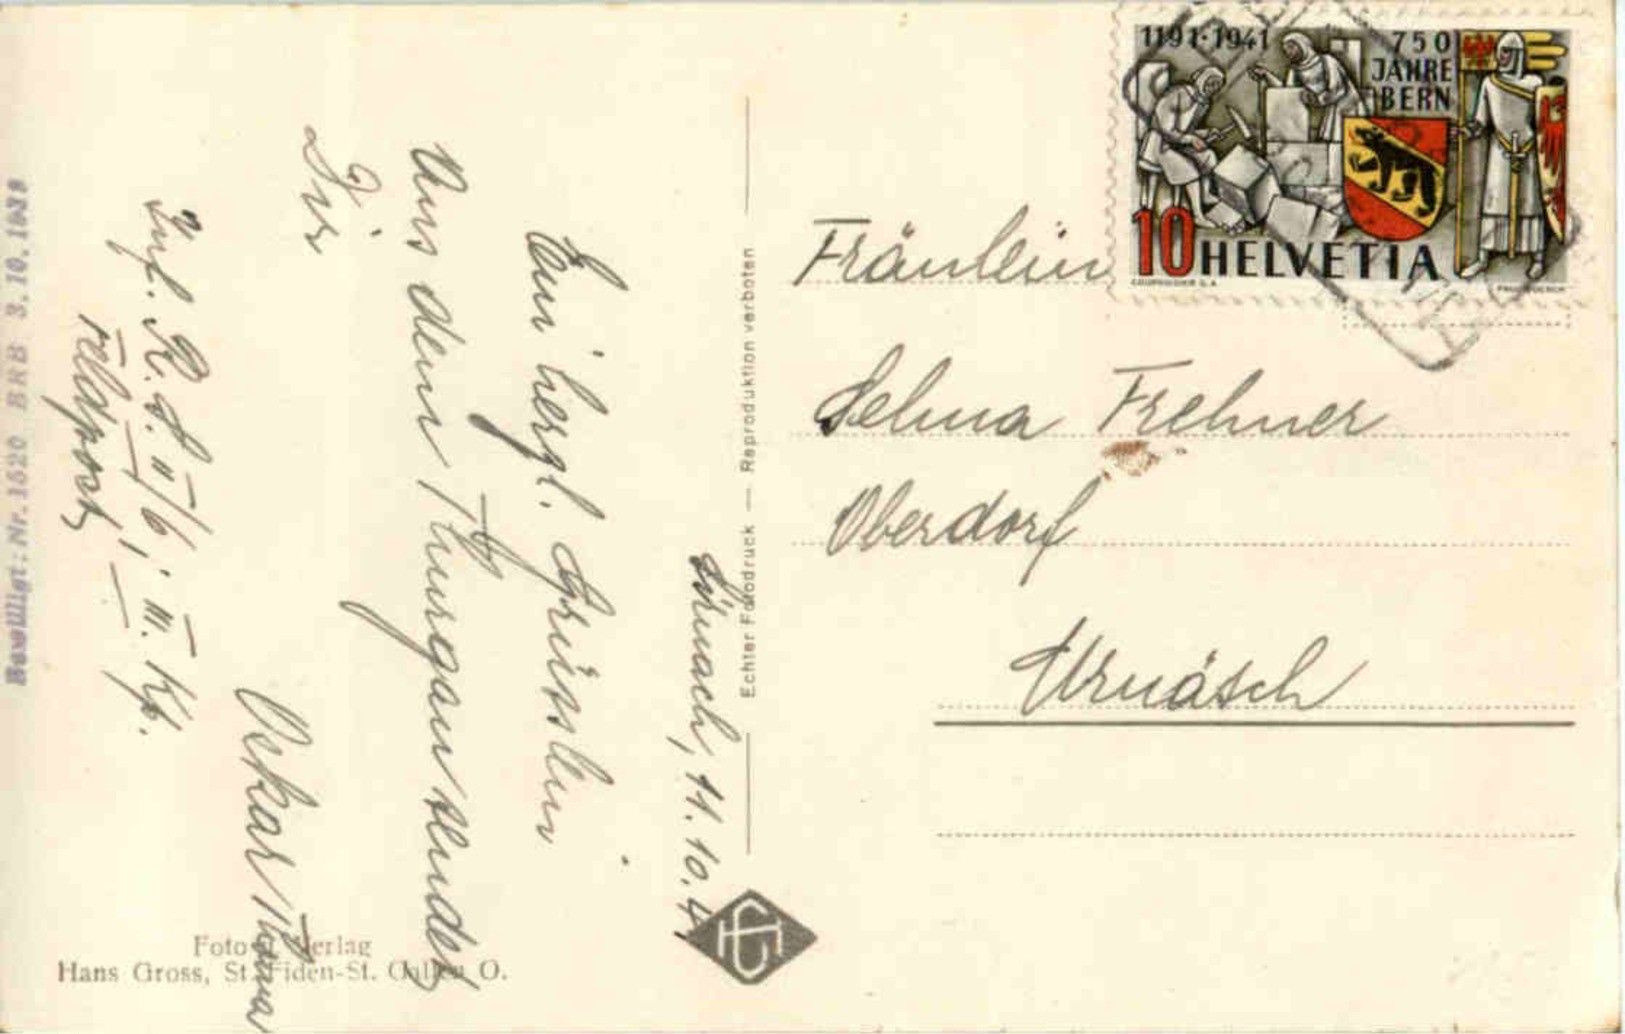 Sirnach, 11.10.41
Ein herzl. Grüsslein
Aus dem Thurgau sendet
Dir
Oskar
Inf. R. S. II/6, III. Kp.
Feldpost
Bewilligt: Nr. 1520 BRB 3.10.1939
Foto Verlag
Hans Gross, St. Fiden-St. Gallen O.
Echter Fotodruck — Reproduktion verboten
1191·1941
750
JAHRE
BERN
10 HELVETIA
COURVOISIER S.A.
Fräulein
Selma Frehner
Oberdorf
Urnäsch